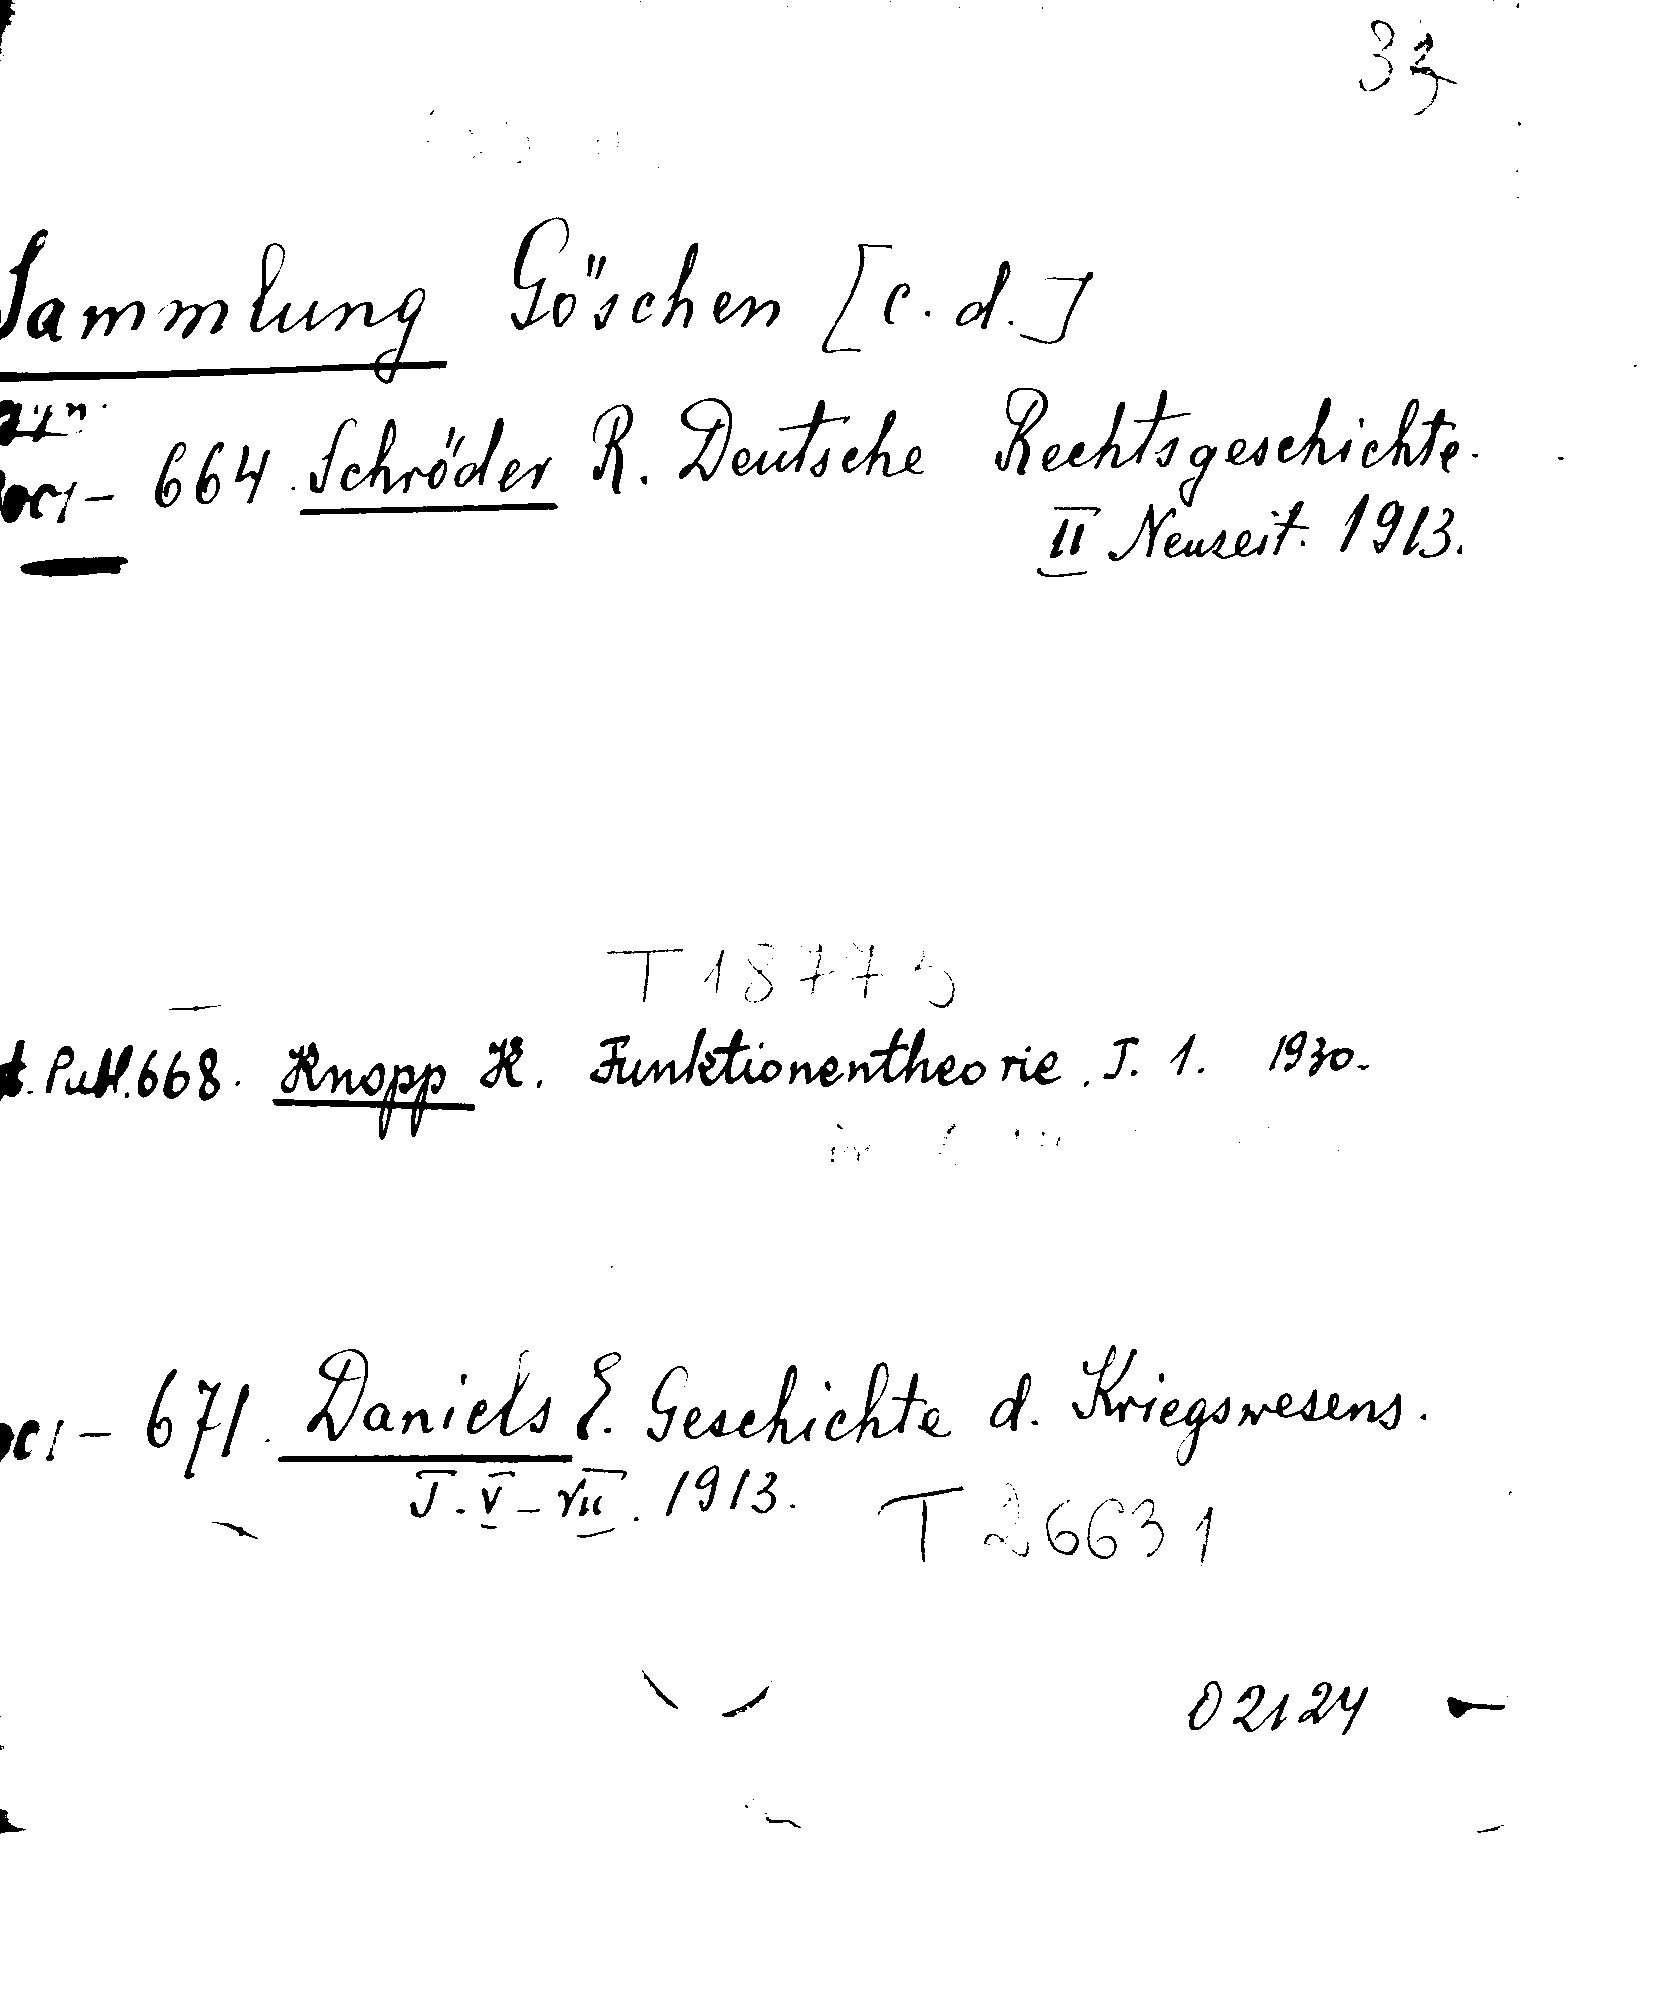 Sammlung Göschen [c. d.]
664. Schröder R. Deutsche Rechtsgeschichte.
II Neuzeit. 1913.
T 18775
Publ. 668. Knopp K. Funktionentheorie. T. 1. 1930.
671. Daniels E. Geschichte d. Kriegswesens.
T. V – VII. 1913. T 26631
02124